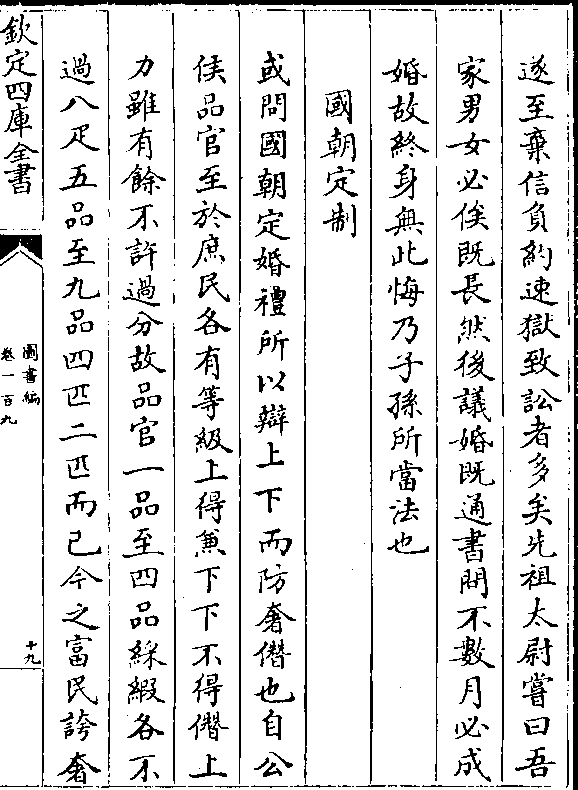 遂至棄信負約速獄致訟者多矣先祖太尉嘗曰吾
家男女必俟既長然後議婚既通書問不數月必成
婚故終身無此悔乃子孫所當法也
國朝定制
或問國朝定婚禮所以辯上下而防奢僭也自公
侯品官至於庶民各有等級上得兼下下不得僭上
力雖有餘不許過分故品官一品至四品綵緞各不
過八疋五品至九品四匹二匹而已今之富民誇奢
欽定四庫全書
圖書編
卷一百九
十九